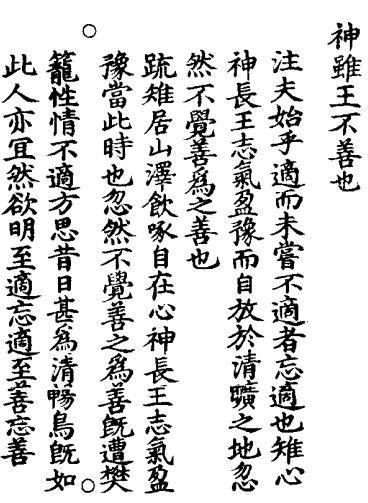 神雖王不善也
注夫始乎適而未嘗不適者忘適也雉心
神長王志氣盈豫而自放於清曠之地忽
然不覺善爲之善也
䟽雉居山澤飲啄自在心神長王志氣盈
豫當此時也忽然不覺善之爲善旣遭樊
籠性情不適方思昔日甚爲清暢鳥旣如
此人亦冝然欲明至適忘適至善忘善